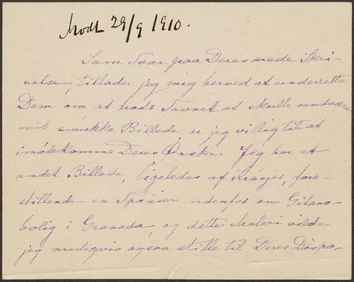 Modt 29/9 1910.
Som Svar paa Deres ærede Skri-
velse, tillader jeg mig herved at underrette
Dem om at hads Tivert at Skulle undvære
mit smukke Billede, er jeg villig til at
imødekomme Deres Ønske. Jeg har et
andet Billede, ligeledes af Krøyer, fore-
stillende en Spanier udenfor en Gitano-
bolig i Granada, og dette Maleri vilde
jeg muligvis ogsaa stille til Deres Dispo-